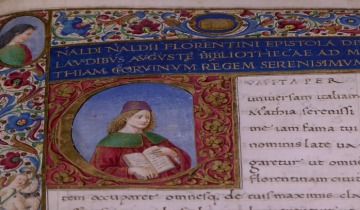 NALDI NALDII FLORENTINI EPISTOLA D
LAVDIBVS AVGVSTE BIBLIOTHECAE AD M
THIAM CORVINVM REGEM SERENISIMVM
VSITA PER
universam italiam
Mathia serenissi
me iam fama tu
nominis late va
garetur ut omni
florentinam civit
tem occuparet omnesq; de eius maximis